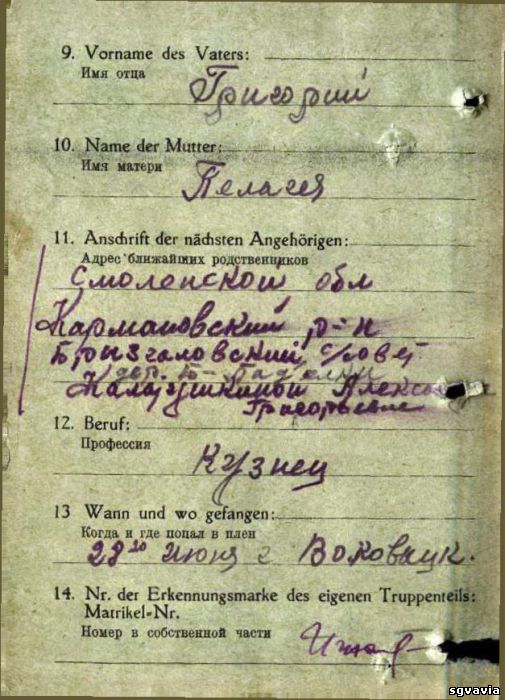 9. Vorname des Vaters:
Имя отца
Григорий
10. Name der Mutter:
Имя матери
Пелагея
11. Anschrift der nächsten Angehörigen:
Адрес ближайших родственников
Смоленской обл
Кармановский р-н
Брызгаловский с/совет
дер.
Григорьевне
12. Beruf:
Профессия
Кузнец
13 Wann und wo gefangen:
Когда и где попал в плен
28го июня г Волковыск.
14. Nr. der Erkennungsmarke des eigenen Truppenteils:
Matrikel-Nr.
Номер в собственной части
sgvavia